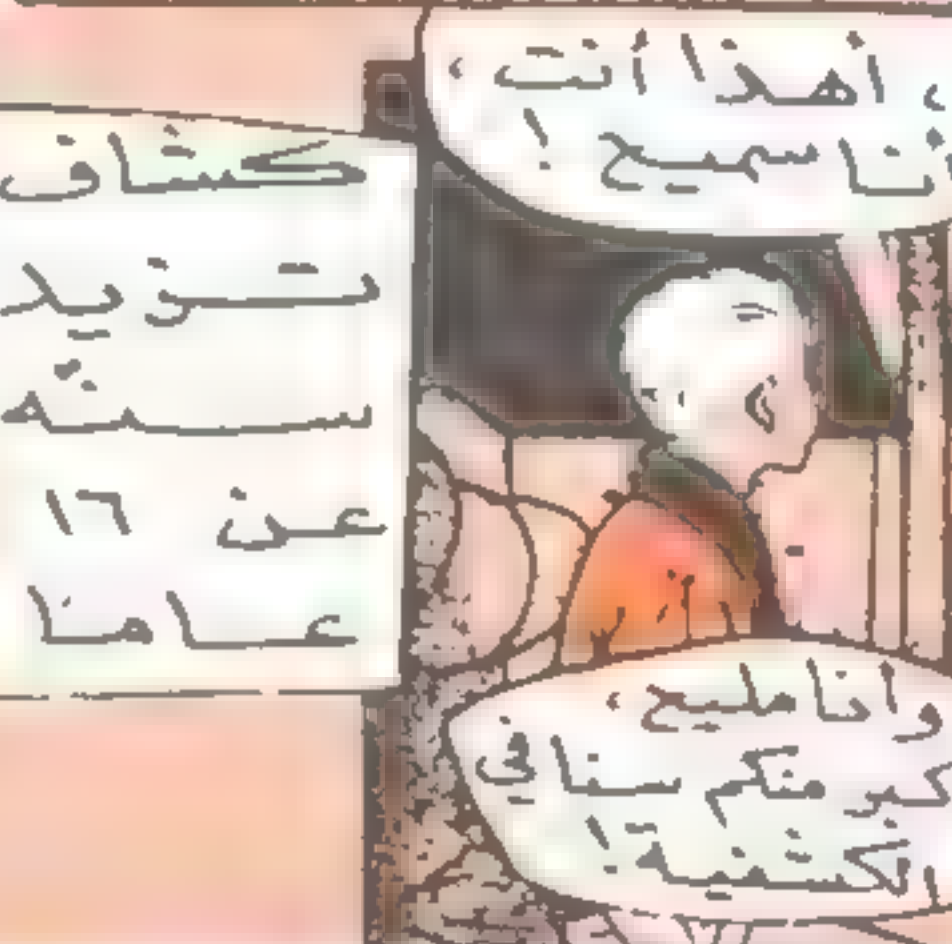 أهذا أنت ،
أنا سميح !
كشاف
تزيد
سنه
عن ١٦
عاما
و انا مليح ،
كبر منكم سنا في
الكشفية !